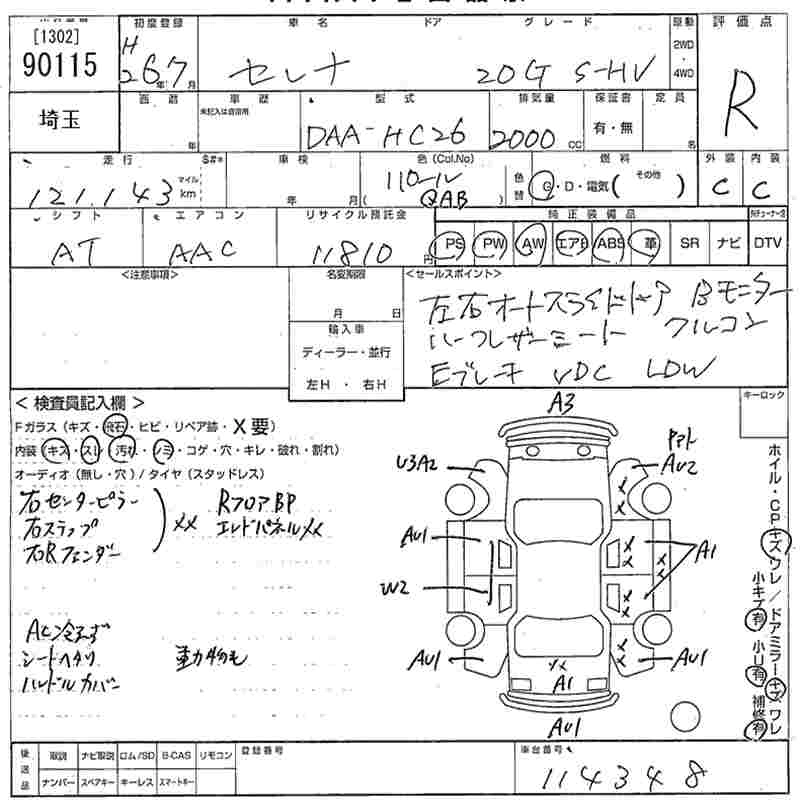 [1302]
90115
初度登録
H 26年7月
車名 ドア グレード
セレナ 20G S-HV
原動
2WD
4WD
評価点
R
埼玉
西暦
年
車歴
未記入は自家用
型式
DAA-HC26
排気量
2000 cc
保証書
有・無
定員
名
走行
121,143
マイル
km
S#*
車検
年 月
色(Col.No)
QAB
色替
燃料
G・D・電気( その他 )
外装
C
内装
C
シフト
AT
エアコン
AAC
リサイクル預託金
11810円
純正装備品
PS PW AW エアB ABS 革 SR ナビ DTV
<注意事項>
名変期限
月 日
輸入車
ディーラー・並行
左H ・ 右H
<セールスポイント>
左右オートスライドドア Bモニター
ハーフレザーシート クルコン
Eブレーキ VDC LDW
<検査員記入欄>
Fガラス(キズ・飛石・ヒビ・リペア跡・X要)
内装(キズ・スレ・汚れ・シミ・コゲ・穴・キレ・破れ・割れ)
オーディオ(無し・穴)/タイヤ(スタッドレス)
右センターピラー
右ステップ
右Rフェンダー
XX
RフロアBP
エンドパネルXX
AC冷えず
シートヘタリ
ハンドルカバー
動物毛
キーロック
A3
U3A2
AU2
AU1
A1
W2
AU1
AU1
XX
A1
AU1
ホイル・CPキズワレ/ドアミラーキズワレ
小キズ有 小U有 補修有
後送品
取説 ナビ取説 ロム/SD B-CAS リモコン
ナンバー スペアキー キーレス スマートキー
登録番号
車台番号
114348